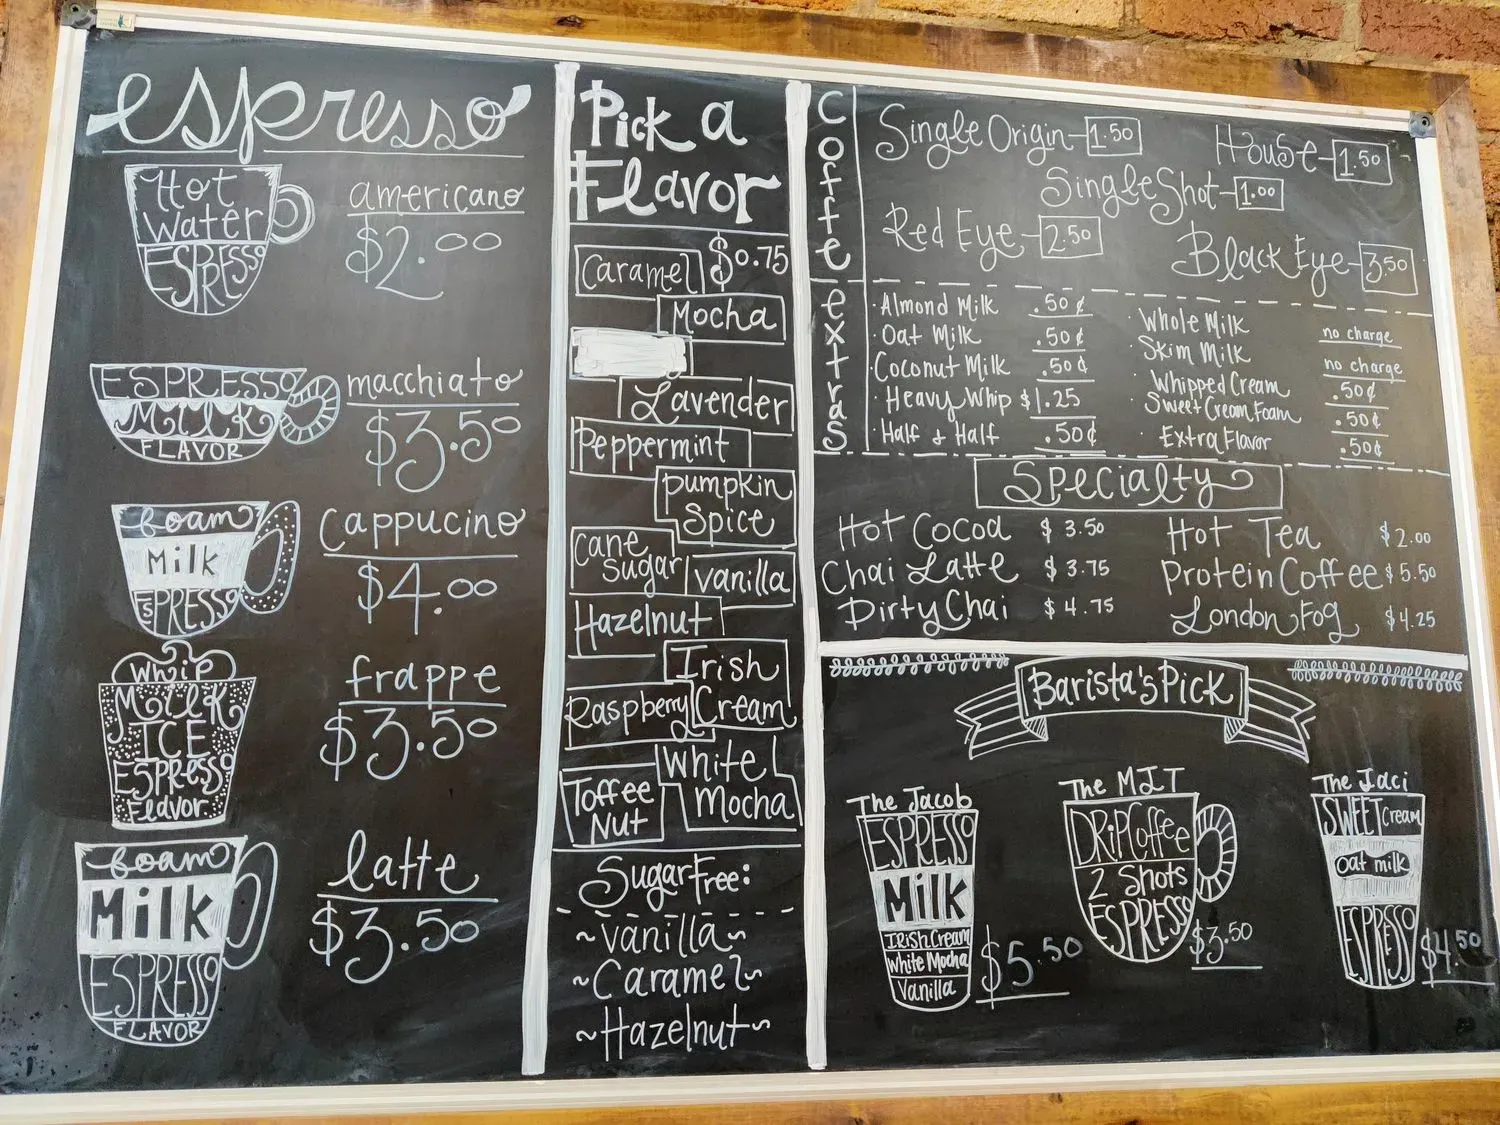 espresso
Hot
Water
ESPRESSO
americano
$2.00
ESPRESSO
Milk
FLAVOR
macchiato
$3.50
foam
Milk
ESPRESSO
Cappucino
$4.00
Whip
Milk
ICE
ESPRESSO
Flavor
frappe
$3.50
foam
Milk
ESPRESSO
FLAVOR
latte
$3.50
Pick a
Flavor
$0.75
Caramel
Mocha
Lavender
Peppermint
Pumpkin
Spice
Cane
Sugar
Vanilla
Hazelnut
Irish
Cream
Raspberry
White
Mocha
Toffee
Nut
Sugar Free:
~Vanilla~
~Caramel~
~Hazelnut~
Coffee
Single Origin-1.50
House-1.50
Single Shot-1.00
Red Eye-2.50
Black Eye-3.50
extras
· Almond Milk .50¢
· Oat Milk .50¢
· Coconut Milk .50¢
· Heavy Whip $1.25
· Half & Half .50¢
· Whole Milk no charge
· Skim Milk no charge
· Whipped Cream .50¢
· Sweet Cream Foam .50¢
· Extra Flavor .50¢
Specialty
Hot Cocoa $3.50
Chai Latte $3.75
Dirty Chai $4.75
Hot Tea $2.00
Protein Coffee $5.50
London Fog $4.25
Barista's Pick
The Jacob
ESPRESSO
Milk
IRish Cream
White Mocha
Vanilla
$5.50
The MIT
DRiP Coffee
2 Shots
ESPRESSO
$3.50
The Jaci
SWEET Cream
Oat milk
ESPRESSO
$4.50